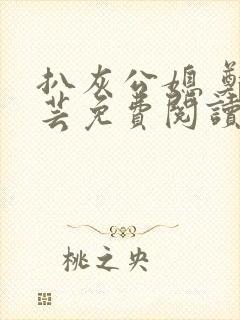 扒灰公媳 鄭
芸免費閱讀
桃之央